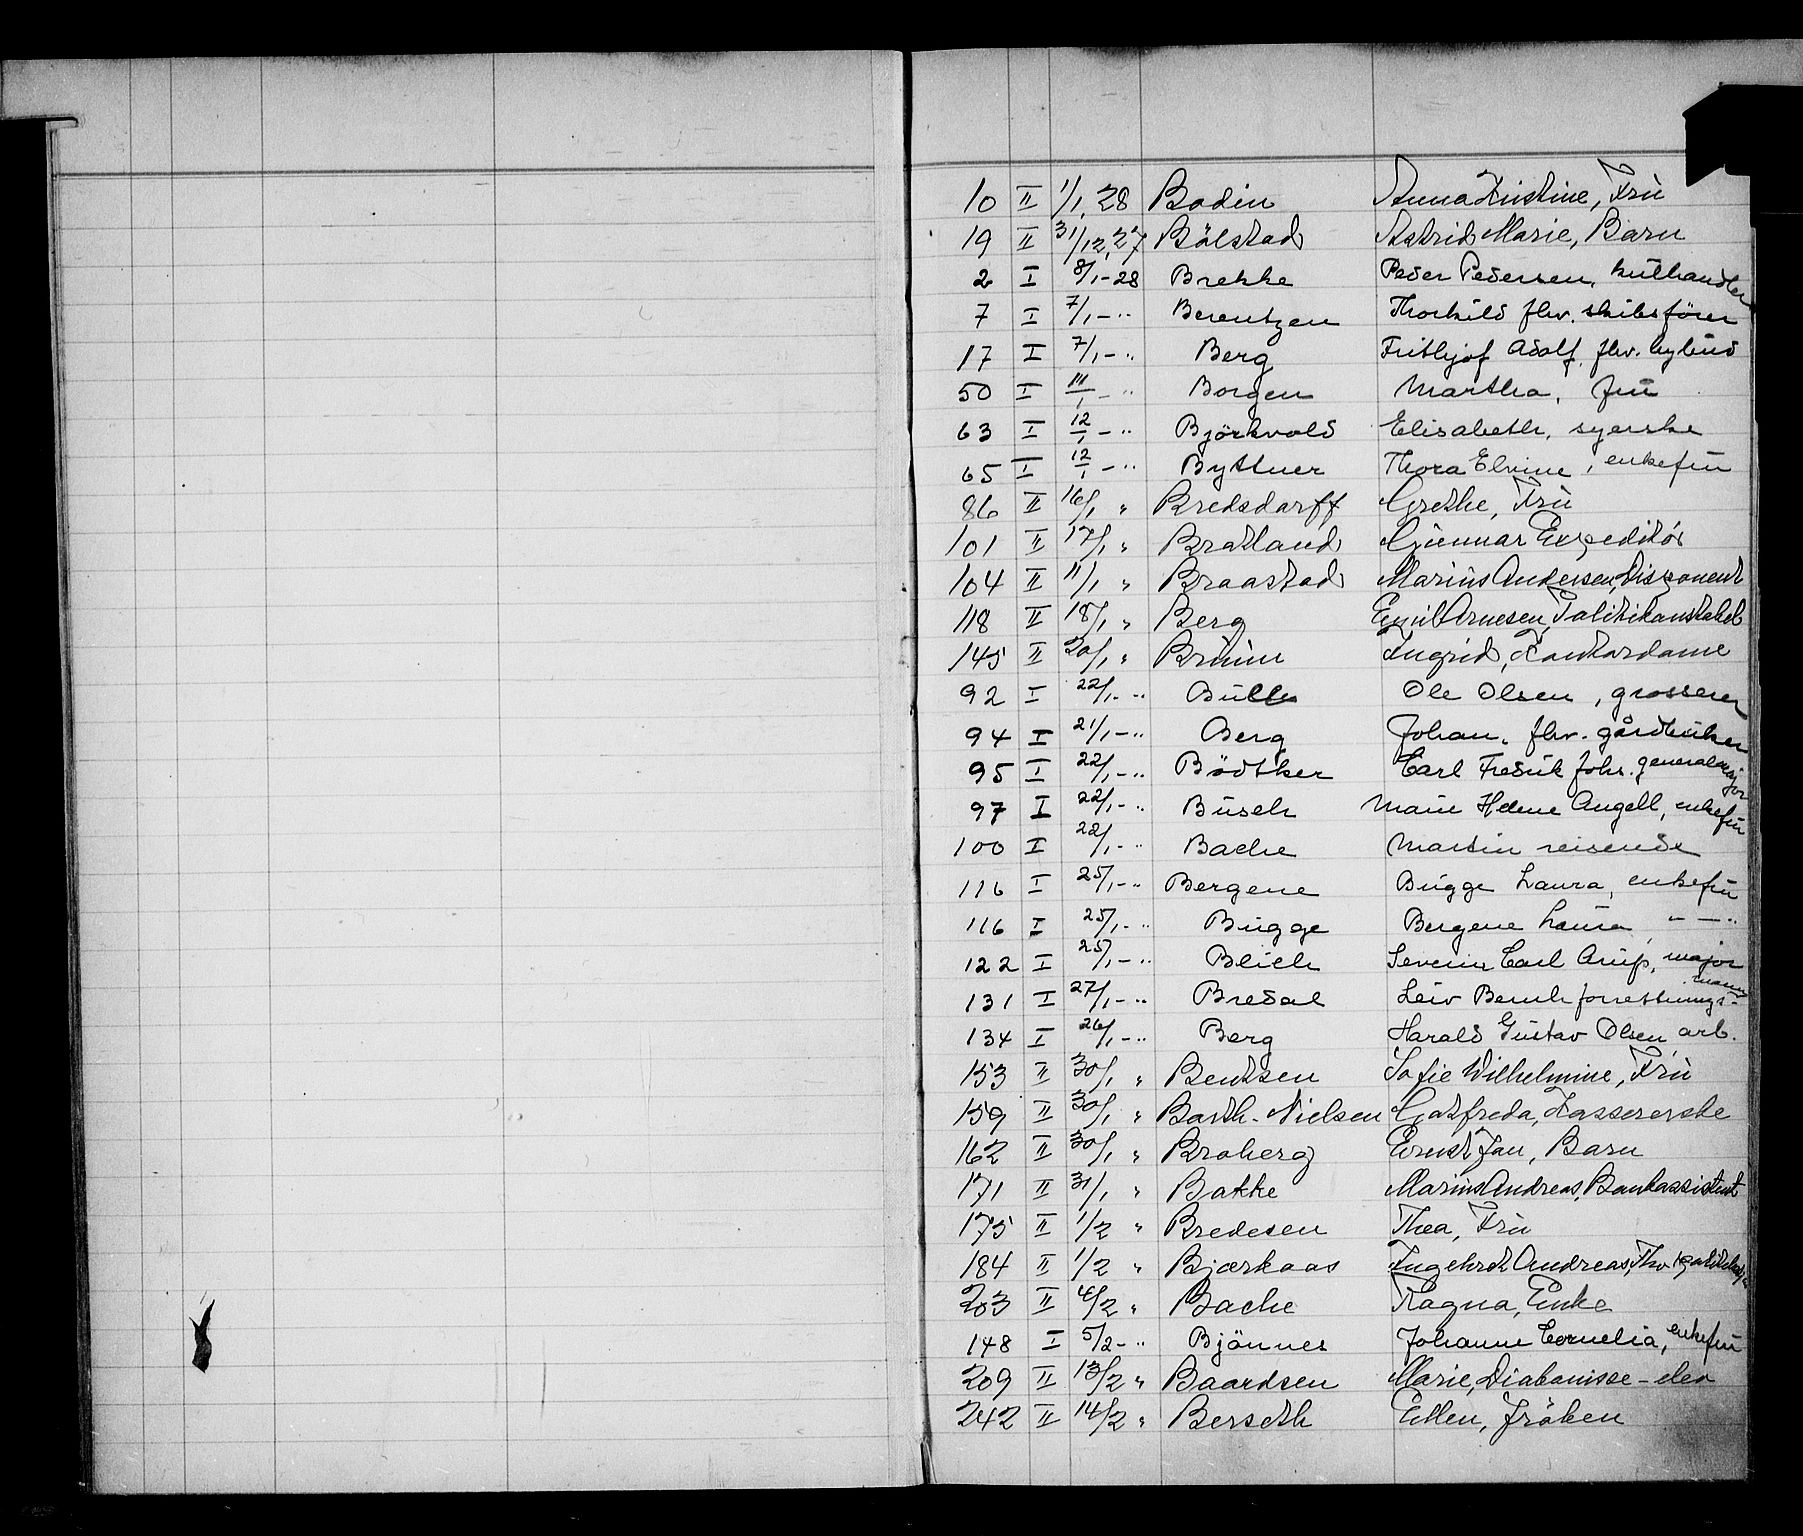 10 II 1/1 28 Bodin Anna Kristine, Frü
19 II 31/12,27 Bölstad Astrid Marie, Barn
2 I 8/1-28 Brekke Peder Pedersen, kulhandler
7 I 7/1 - " Berentzen Thorkild fhv. skibsförer
17 I 7/1 - " Berg Frithjof Adolf. fhv. lagbud
50 I 11/1 - " Borgen Martha, frü
63 I 12/1 - " Björkvold Elisabeth, syerske
65 I 12/1 - " Byttner Thora Elvine, enkefrü
86 II 16/1 " Bredsdorff Grethe, Frü
101 II 17/1 " Bratland Günnar Expeditör
104 II 11/1 " Braastad Mariüs Andersen, Disponent
118 II 18/1 " Berg Emil Arnesen, Politikonstabel
145 II 20/1 " Brüün Ingrid, Kontordame
92 I 22/1 - " Bülle Ole Olsen, grosserer
94 I 21/1 - " Berg Johan, fhv. gårdbrüker
95 I 22/1 - " Bødtker Carl Fredrik Johs. generalmajor
97 I 22/1 - " Büsch Marie Helene Angell, enkefrü
100 I 22/1 - " Bache Martin reisende
116 I 25/1 - " Bergene Bügge Laura, enkefrü
116 I 25/1 - " Bügge Bergene Laura, " — "
122 I 25/1 - " Blich Severin Carl Arüp, major
131 I 27/1 - " Bredal Leiv Bernh forretnings-mann
134 I 26/1 - " Berg Harald Güstav Olsen, arb.
153 II 30/1 " Bentsen Sofie Wilhelmine, Frü
159 II 30/1 " Barth-Nielsen Gotfreda, Kassererske
162 II 30/1 " Broberg Ernst Jan, Barn
171 II 31/1 " Bakke Mariüs Andreas, Bankassistent
175 II 1/2 " Bredesen Thea, Frü
184 II 1/2 " Bjerkaas Ingebret Andreas, Fhv.
203 II 4/2 " Bache Ragna, Enke
148 I 5/2 - " Bjönnes Johanne Cornelia, enkefrü
209 II 13/2 " Baardsen Marie, Diakonisse-elev
242 II 14/2 " Berseth Ellen, Fröken